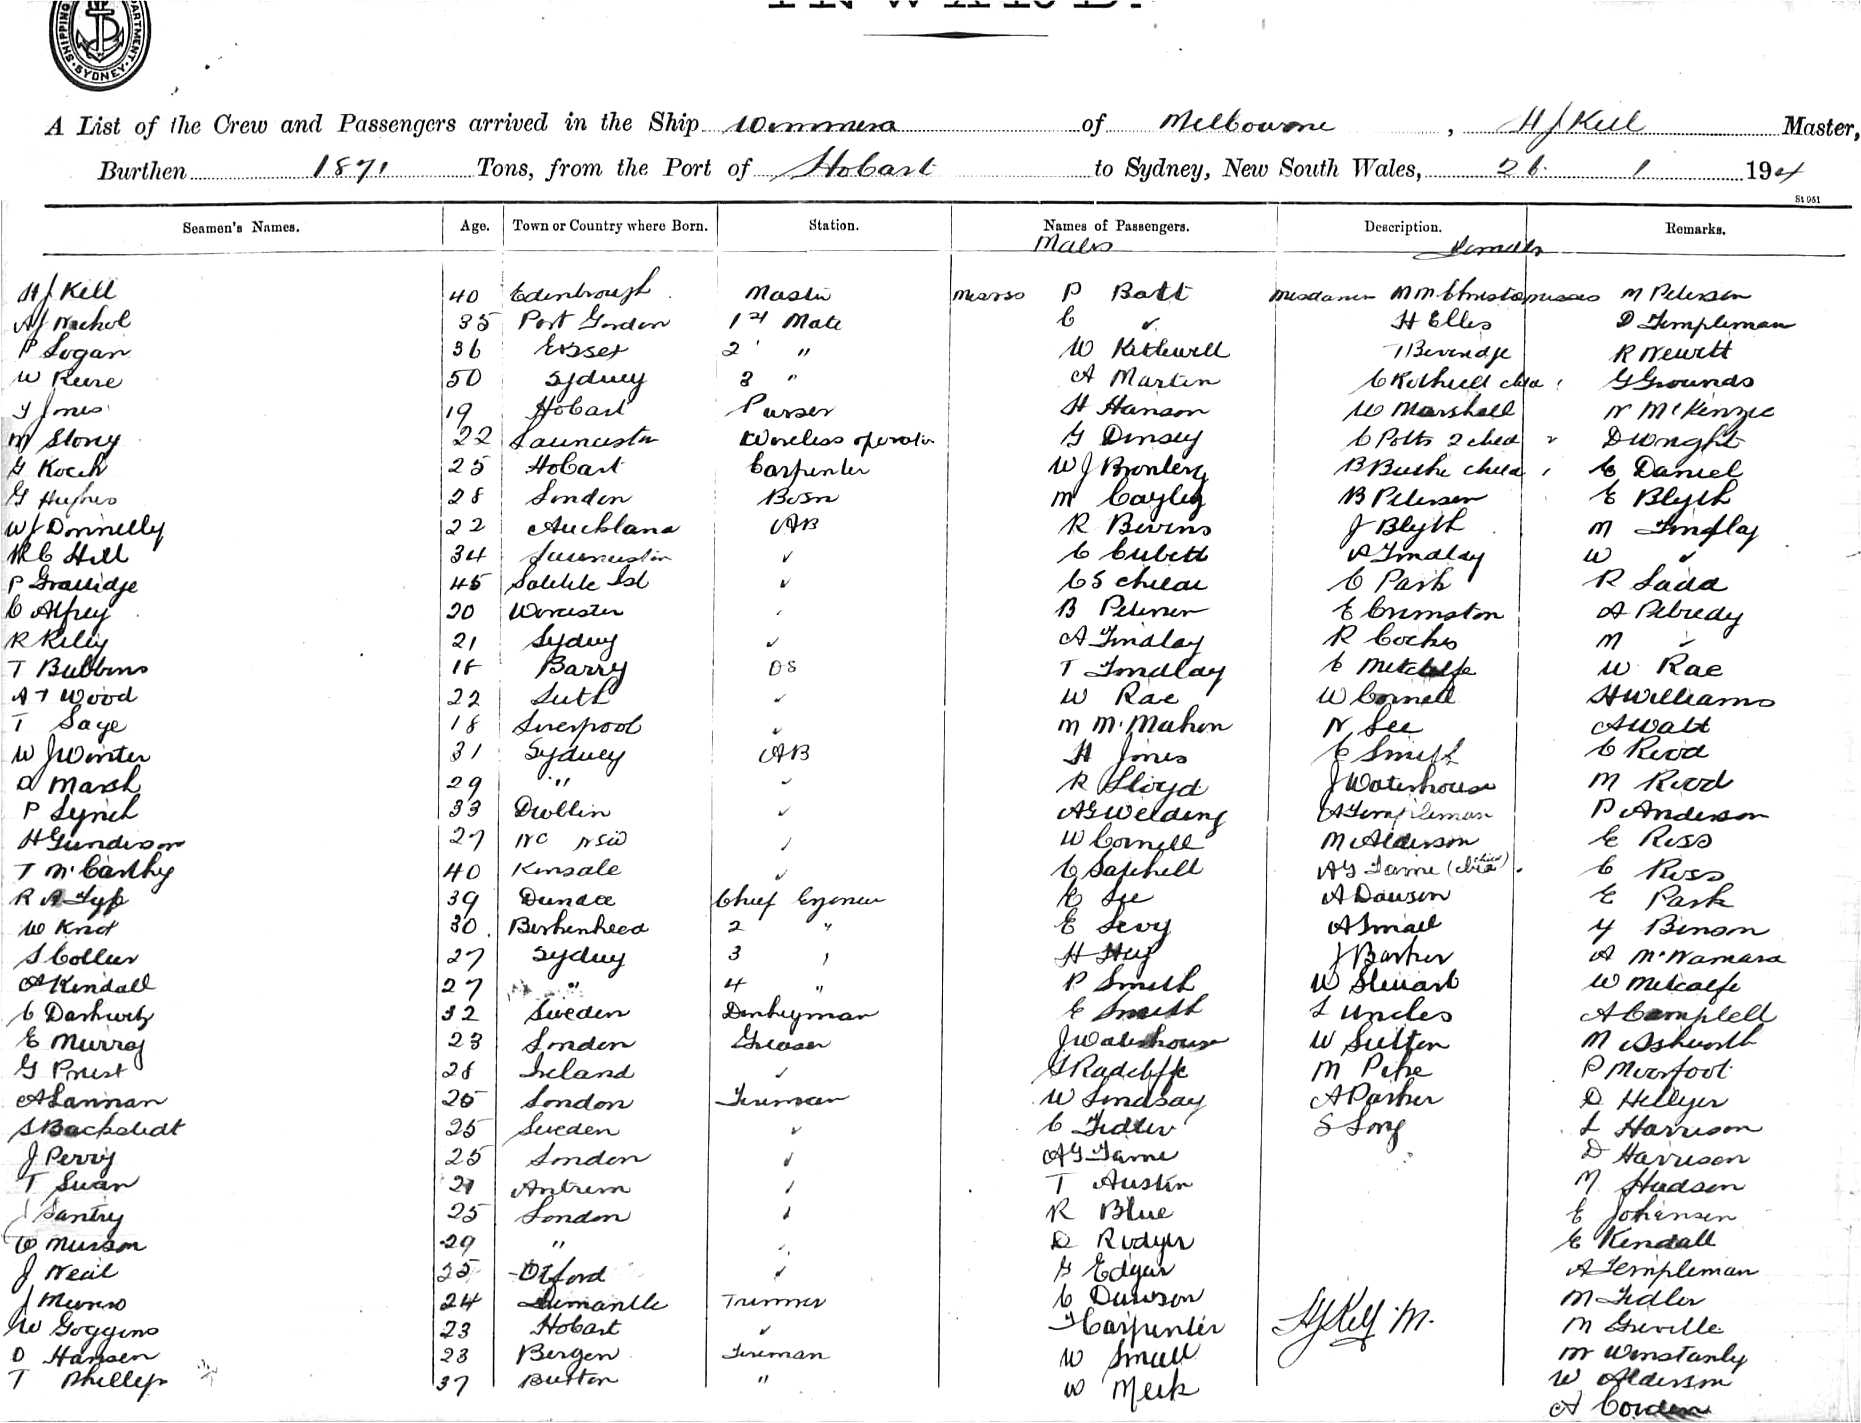 SHIPPING DEPARTMENT SYDNEY
INWARD.
A List of the Crew and Passengers arrived in the Ship Wimmera of Melbourne, H J Kell Master,
Burthen 1871 Tons, from the Port of Hobart to Sydney, New South Wales, 26. 1 1904
St 951
Seamen's Names. Age. Town or Country where Born. Station. Names of Passengers. Description. Remarks.
Males Females
H J Kell 40 Edinbrough Master Messrs P Batt Mesdames M M Christo Misses M Petersen
A J Nichol 35 Port Gordon 1st Mate C " H Elles D Templeman
P Logan 36 Essex 2 " W Kethewell T Beveridge R Newitt
W Rene 50 Sydney 3 " A Martin C Rothwell child G Grounds
T Jones 19 Hobart Purser H Hanson W Marshall N McKenzie
M Story 22 Launceston Wireless operator G Dinsey C Potts 2 child D Wright
G Koch 25 Hobart Carpenter W J Bromberg B Burke child C Daniel
G Hughes 28 London Bosn M Cayley B Petersen E Blyth
W J Donnelly 22 Auckland AB R Bevins J Blyth M Findlay
Hill 34 Launceston " C Cubett A Findlay W "
P Grallidge 45 " C S child C Park R Ladd
C Alfrey 20 Worcester B Petersen E Crimston A Pebredy
R Riley 21 Sydney " A Findlay R Cocks M "
T Bubbins 18 Barry OS T Findlay C Metcalfe W Rae
A T Wood 22 Leith " W Rae W Cornell H Williams
T Saye 18 Liverpool " M McMahon N See A Watt
W J Winter 31 Sydney AB H Jones C Smith C Reod
D Marsh 29 " " R Lloyd J Waterhouse M Reod
P Lynch 33 Dublin " A G Welding A Templeman P Anderson
H Gunderson 27 NC NSW " W Cornell M Alderson E Ross
T McCarthy 40 Kinsale " C Saphell A G Tame (child) C Ross
R A Fyfe 39 Dundee Chief Engineer C See A Dawson E Park
W Knot 30 Birkenhead 2 " E Levy A Small Y Benson
S Collier 27 Sydney 3 " H Hey J Barker A McNamara
A Kendall 27 " 4 " P Smith W Stewart W Metcalfe
C Darkwitz 32 Sweden Donkeyman E Smith L Uncles A Campbell
E Murray 23 London Greaser J Waterhouse W Sutton M Ashworth
G Priest 28 Ireland " G Radcliffe M Pike P Moorfoot
A Lannan 25 London Fireman W Lindsay A Parker D Hellyer
S Backstedt 25 Sweden " C Fidler S Long L Harrison
J Perry 25 London " A G Tame D Harrison
T Swan 21 Antrim " T Austin M Hudson
J Santry 25 London " R Blue E Johansen
C Musson 29 " " D Rodger E Kendall
J Neil 25 Otford " G Edgar A Templeman
J Munro 24 Fremantle Trimmer C Dawson M Fidler
W Goggins 23 Hobart " T Carpenter H J Kell M. M Greville
O Hansen 23 Bergen Fireman W Small M Winstanly
T Phillips 37 Burton " W Meek W Alderson
A Corden